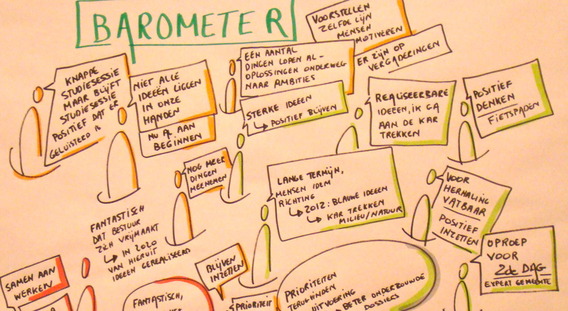 BAROMETER
KNAPPE
STUDIESESSIE
MAAR BLIJFT
STUDIESESSIE
POSITIEF DAT ER
GELUISTERD
NIET ALLE
IDEEËN LIGGEN
IN ONZE
HANDEN
NU AL AAN
BEGINNEN
EEN AANTAL
DINGEN LOPEN AL -
OPLOSSINGEN ONDERWEG
NAAR AMBITIES
STERKE IDEEËN
↳ POSITIEF BLIJVEN
VOORSTELLEN
ZELFDE LIJN
MENSEN
MOTIVEREN
ER ZIJN OP
VERGADERINGEN
REALISEERBARE
IDEEËN, IK GA
AAN DE KAR
TREKKEN
POSITIEF
DENKEN
FIETSPADEN
NOG MEER
DINGEN
MEENEMEN
LANGE TERMIJN,
MENSEN IDEM
RICHTING
↳ 2012: BLAUWE IDEEËN
↳ KAR TREKKEN
MILIEU/NATUUR
VOOR
HERHALING
VATBAAR
POSITIEF
INZETTEN
FANTASTISCH
DAT BESTUUR
ZICH VRIJMAAKT
↳ IN 2020
VAN HIERUIT
IDEEËN GEREALISEERD
SAMEN AAN
WERKEN
BLIJVEN
INZETTEN
FANTASTISCH,
PRIORITEITEN
TERUGVINDEN
UITVOERING
BETER ONDERBOUWDE
DOSSIERS
OPROEP
VOOR
2de DAG
EXPERT GEMEENTE